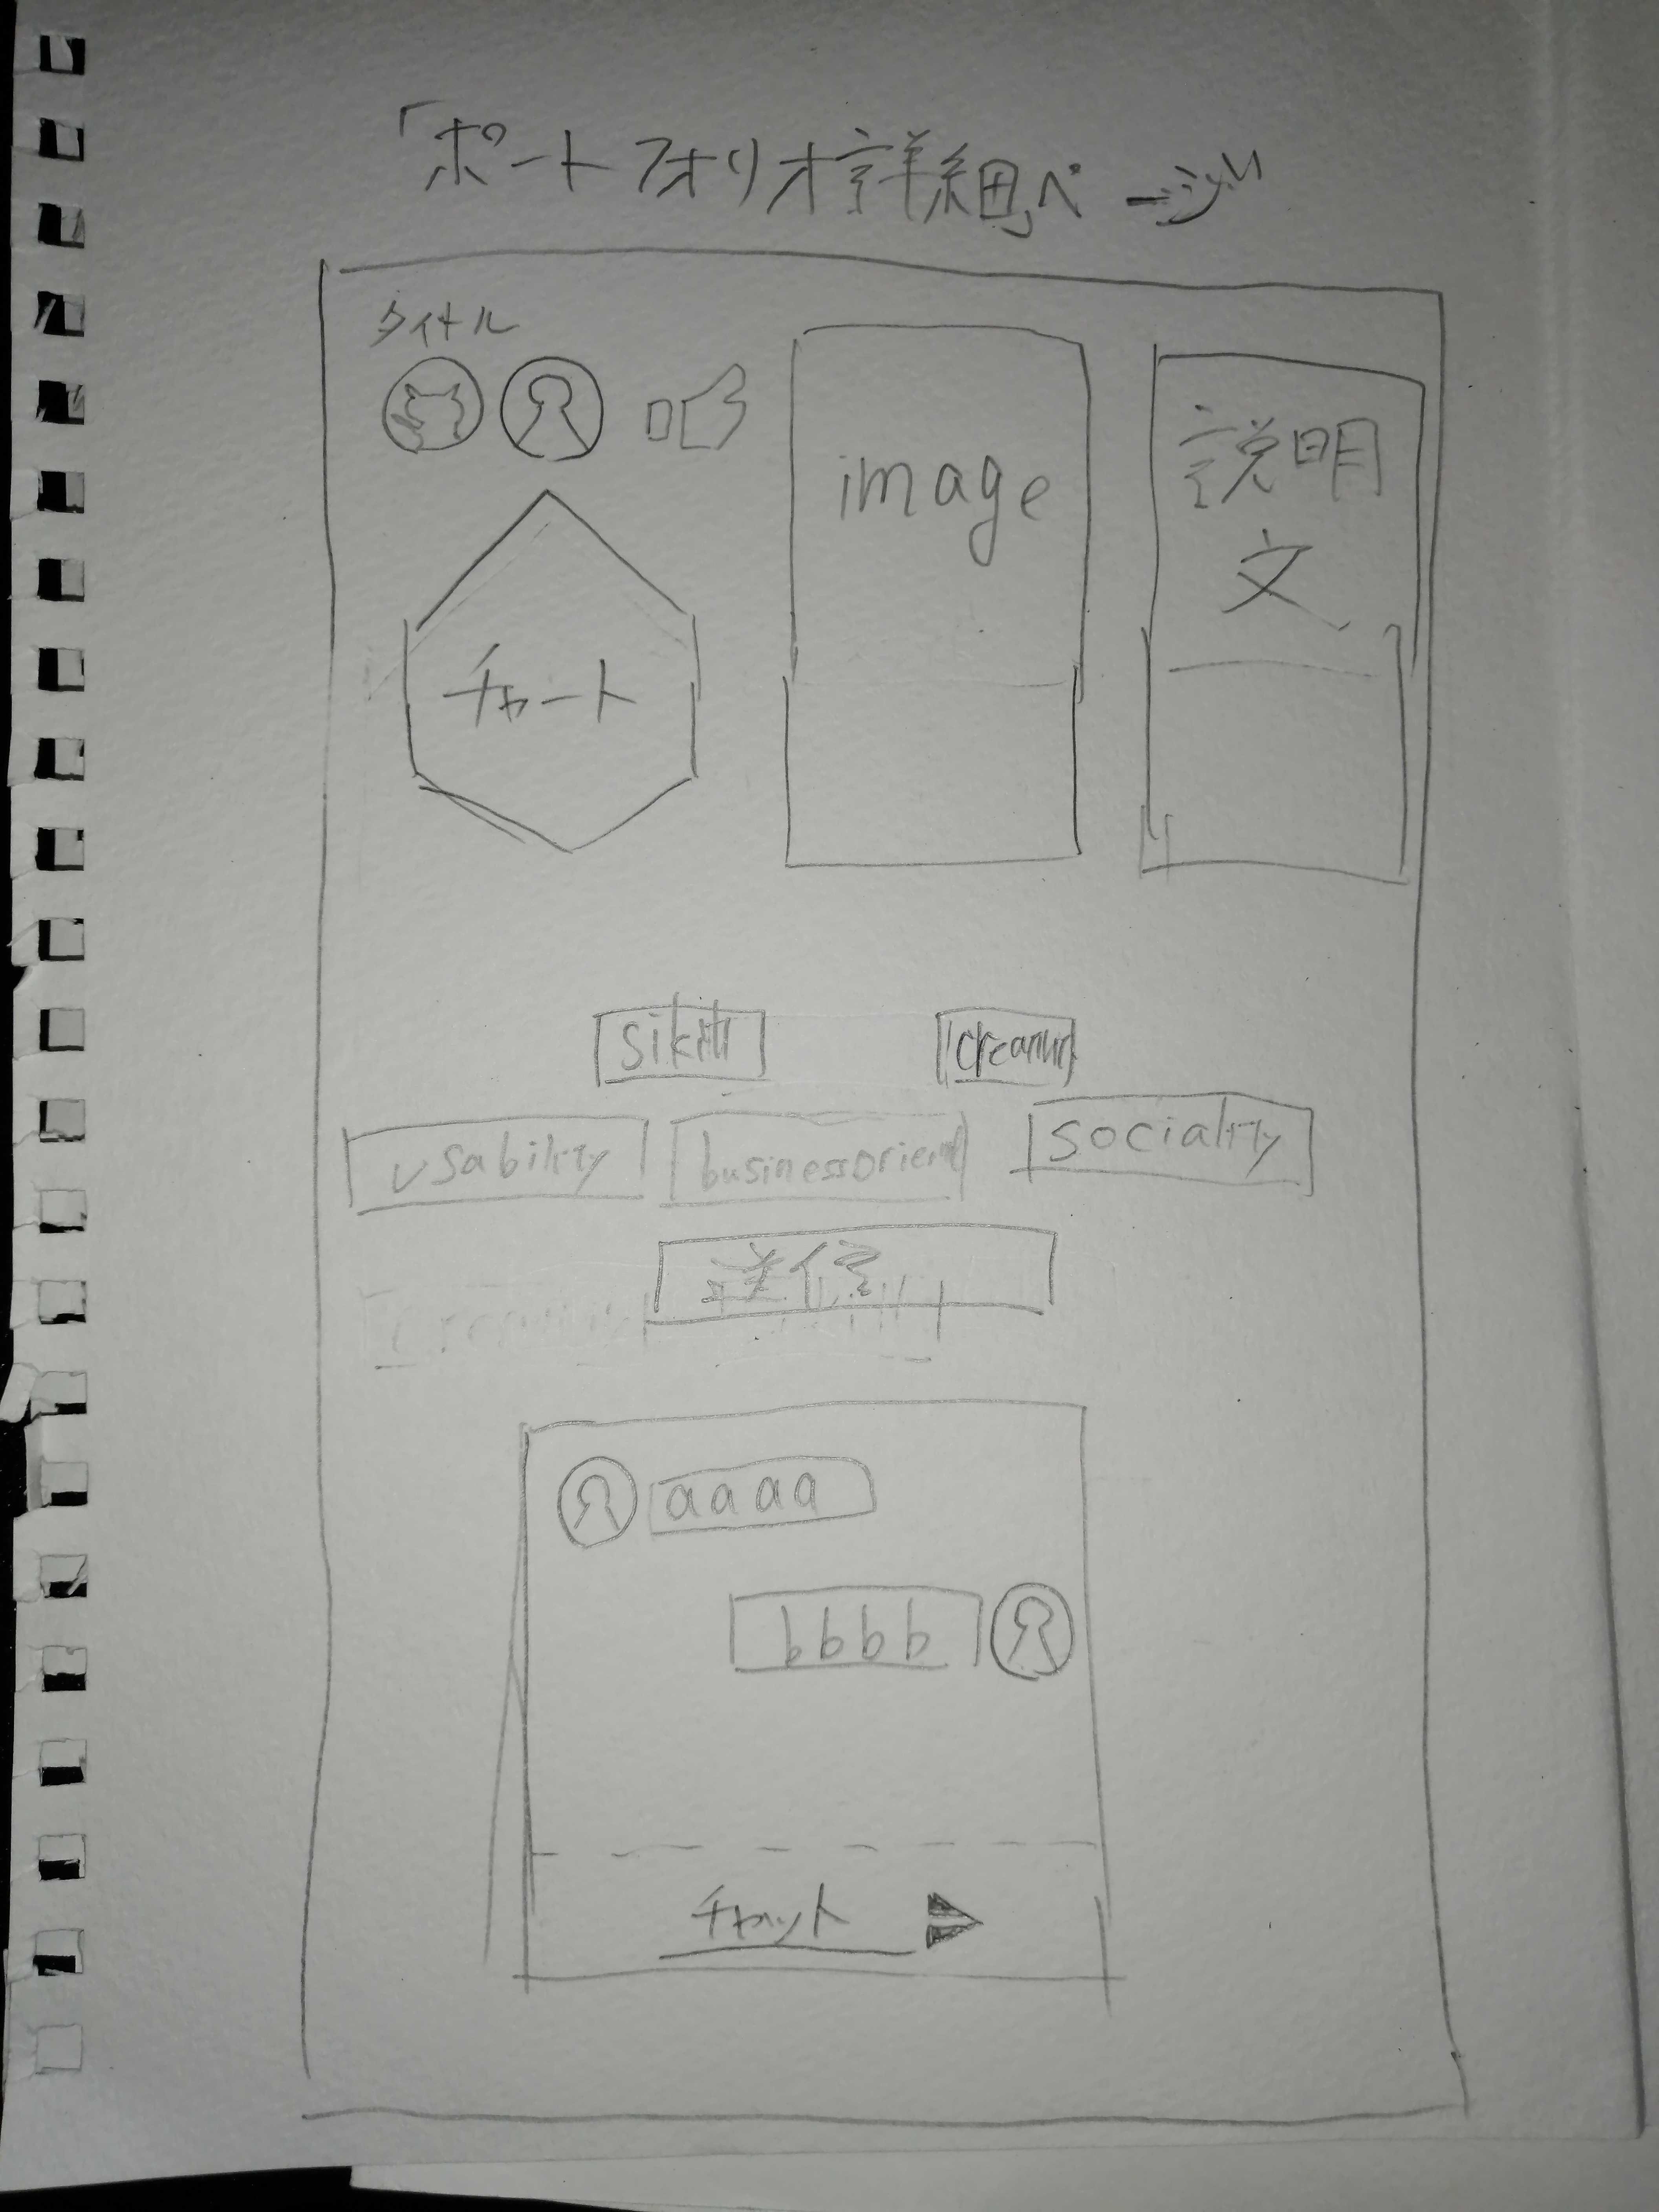 「ポートフォリオ詳細」ページ
タイトル
image
説明
文
チャート
usability
businessOrient
sociality
送信
aaaa
bbbb
チャット